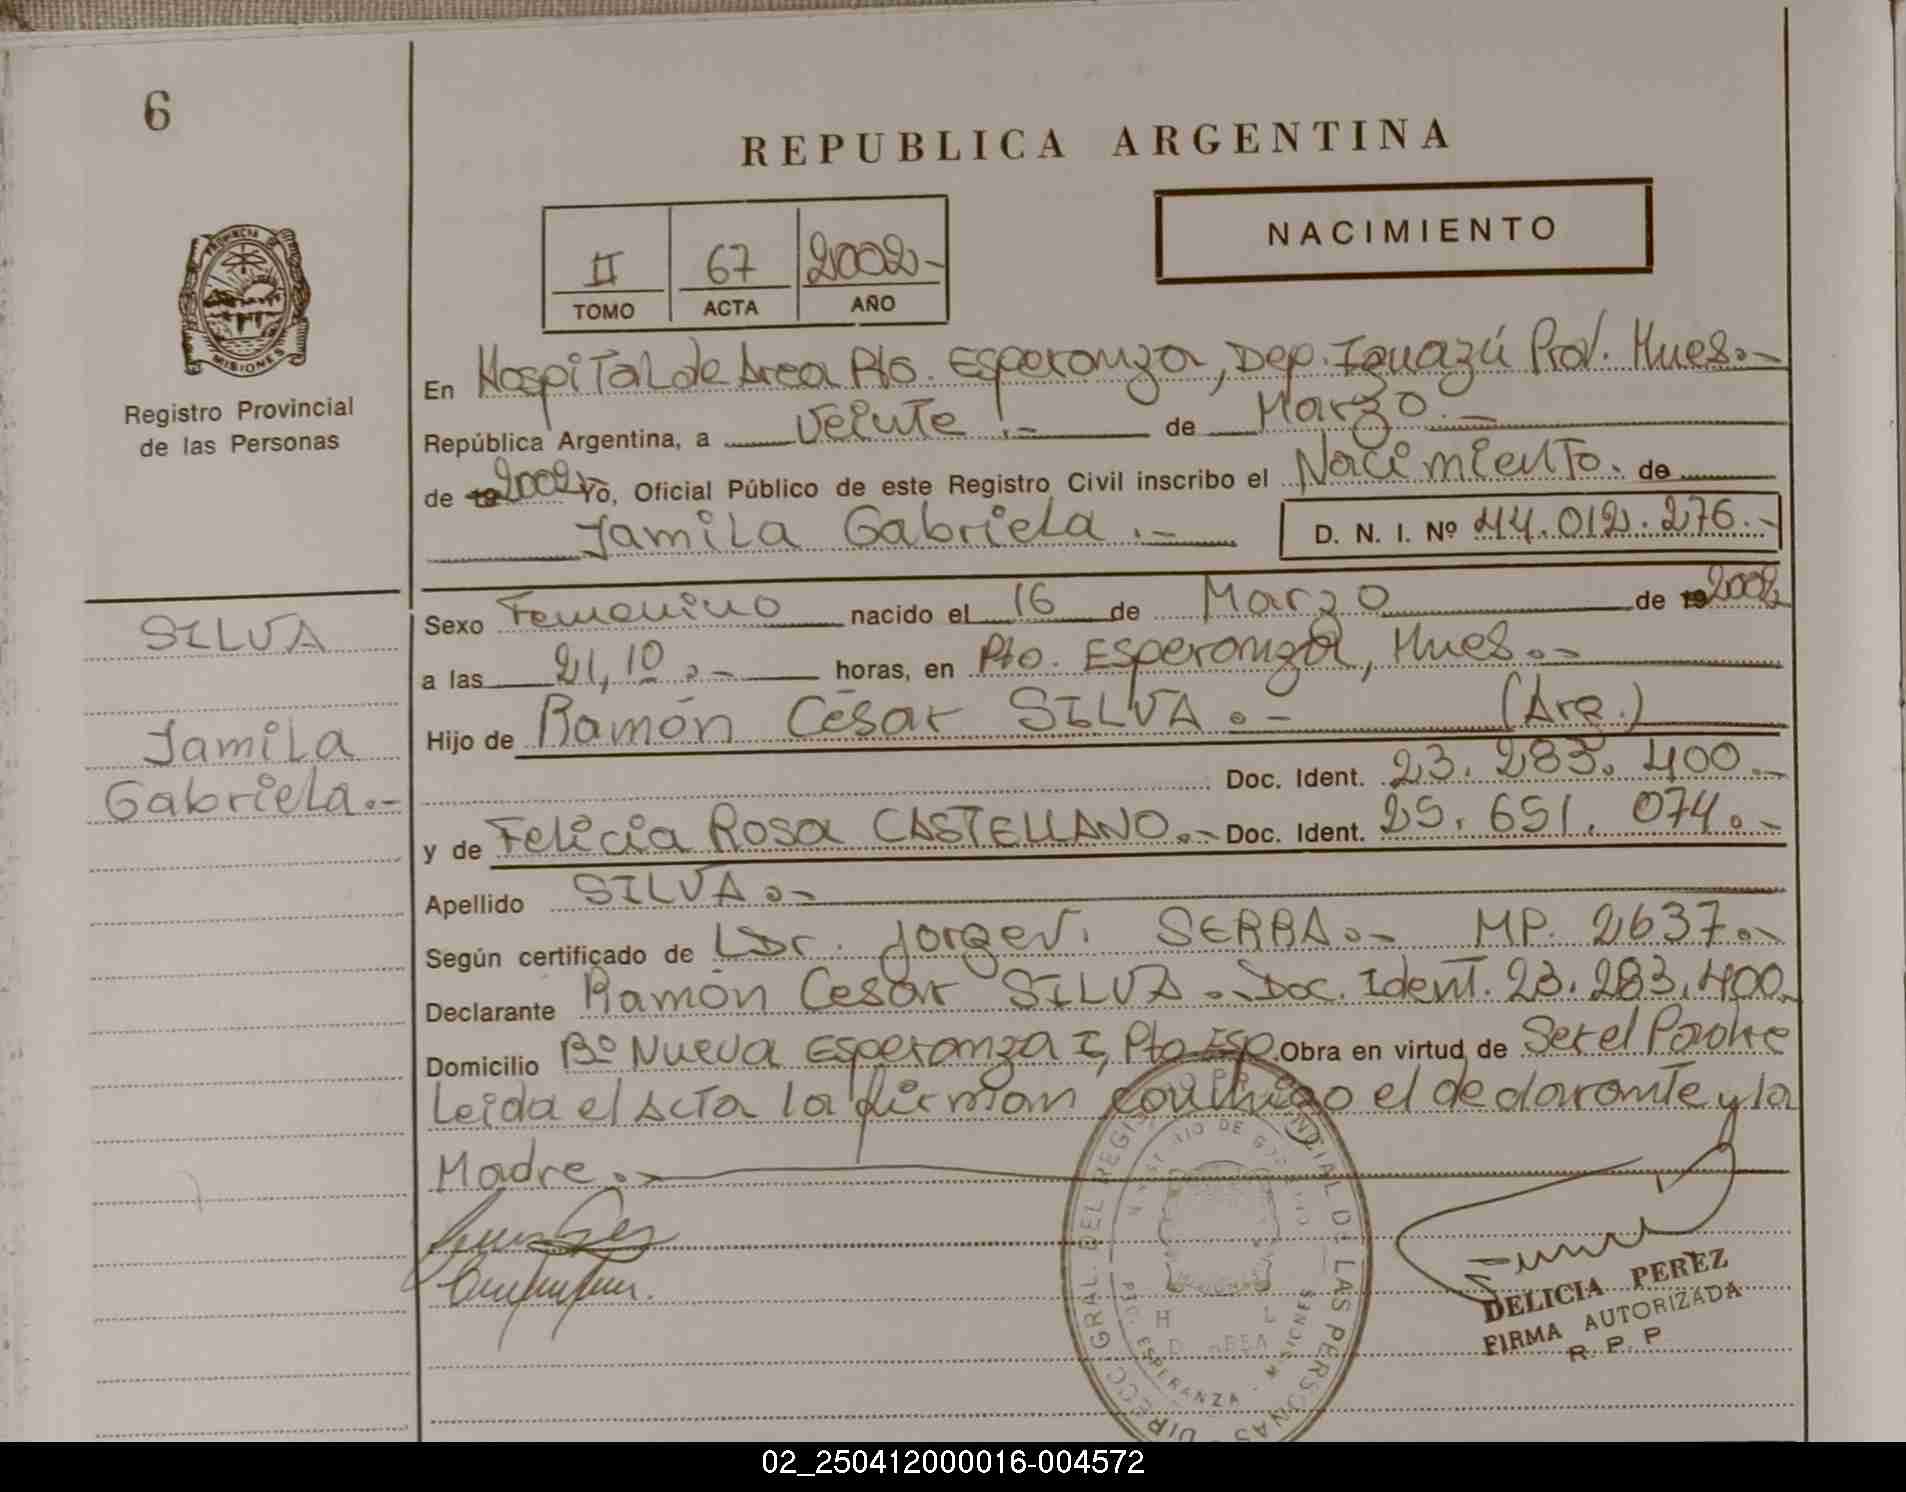 6
REPUBLICA ARGENTINA
NACIMIENTO
II 67 2002.-
TOMO ACTA AÑO
PROVINCIA DE
MISIONES
Registro Provincial
de las Personas
En Hospital de Area Pto. Esperanza, Dep. Iguazú Prov. Mnes.-
República Argentina, a Veinte .- de Marzo.-
de 19 2002 Yo, Oficial Público de este Registro Civil inscribo el Nacimiento. de
Jamila Gabriela .- D. N. I. Nº 44.012.276.-
SILVA
Jamila
Gabriela.-
Sexo Femenino nacido el 16 de Marzo de 19 2002
a las 21,10.- horas, en Pto. Esperanza, Mnes.-
Hijo de Ramón César SILVA.- (Arg.)
Doc. Ident. 23.283.400.-
y de Felicia Rosa CASTELLANO.- Doc. Ident. 25.651.074.-
Apellido SILVA.-
Según certificado de Dr. Jorge V. SERRA.- MP. 2637.-
Declarante Ramón Cesar SILVA.- Doc. Ident. 23.283.400.
Domicilio Bº Nueva Esperanza I, Pto Esp. Obra en virtud de Ser el Padre
Leida el Acta la firman conmigo el declarante y la
Madre.-
DIRECC. GRAL. DEL REGISTRO PROVINCIAL DE LAS PERSONAS
ESPERANZA - MISIONES
DELICIA PEREZ
FIRMA AUTORIZADA
R. P. P
02_250412000016-004572